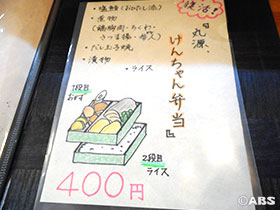 復活!
丸源
げんちゃん弁当
・塩鮭(おろだし添)
・煮物
(鶏胸肉・ちくわ・
さつま揚・昆布)
・だし玉子焼
・漬物
・ライス
1段目
おかず
2段目
ライス
400円
©ABS